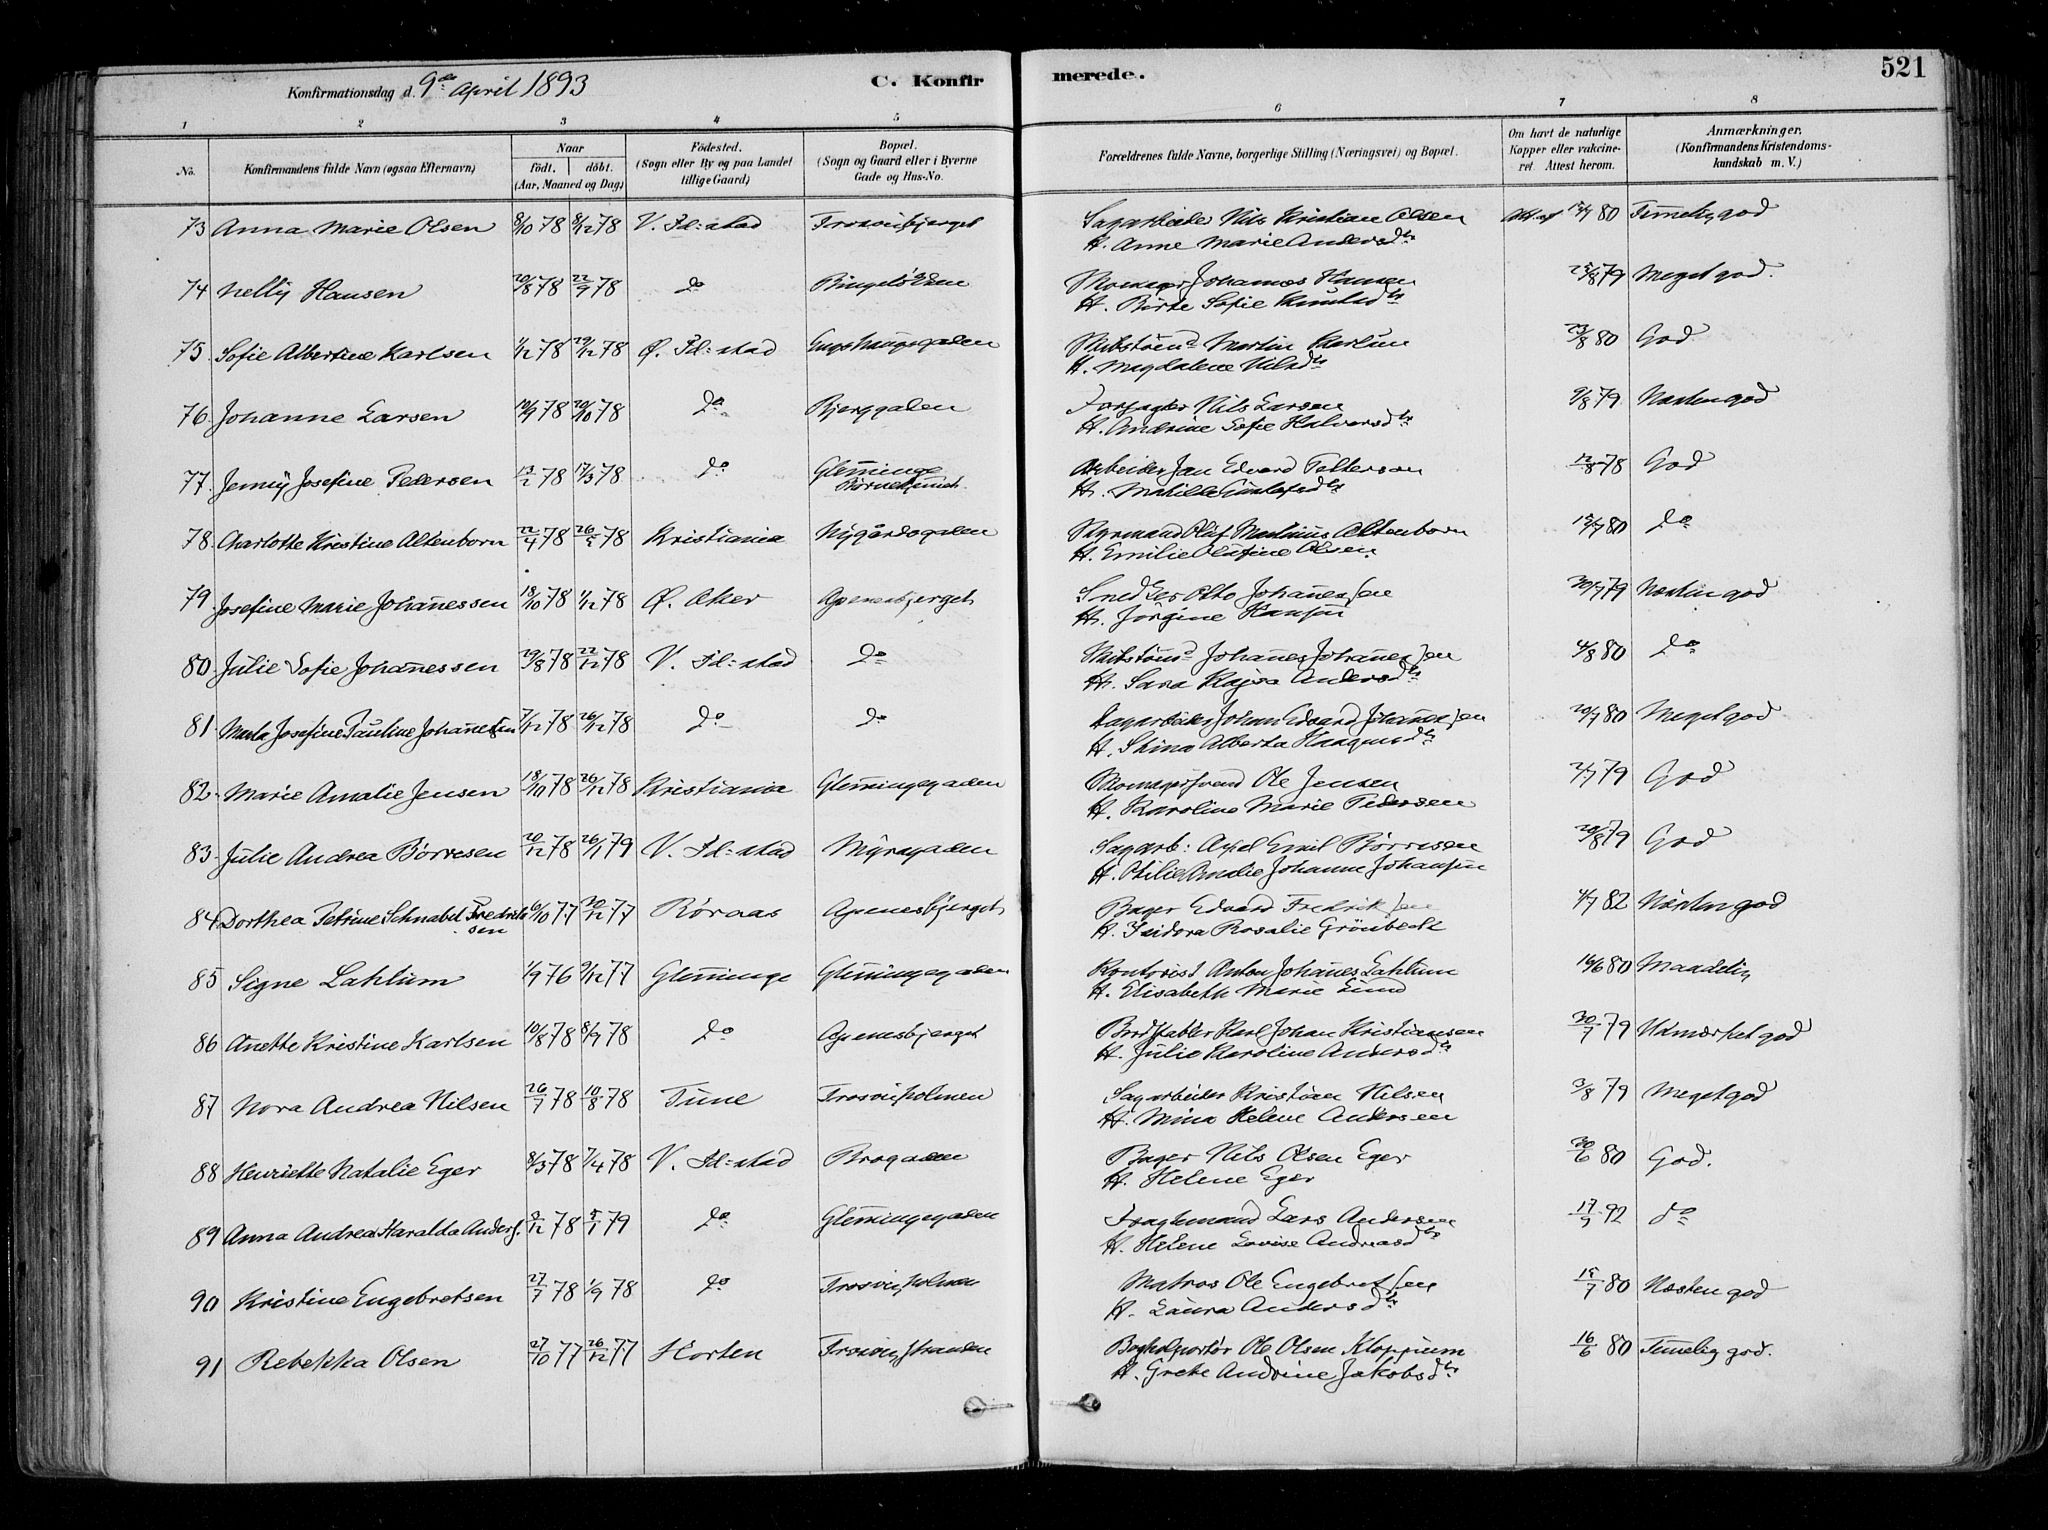 Konfirmationsdag d. 9de April 1893 C. Konfirmerede. 521
1 2 3 4 5 6 7 8
No. Konfirmandens fulde Navn (ogsaa Efternavn) Naar født. døbt. (Aar, Maaned og Dag) Fødested. (Sogn eller By og paa Landet tillige Gaard) Bopæl. (Sogn og Gaard eller i Byerne Gade og Hus-No. Forældrenes fulde Navne, borgerlige Stilling (Næringsvei) og Bopæl. Om havt de naturlige Kopper eller vakcineret. Attest herom. Anmærkninger. (Konfirmandens Kristendomskundskab m. V.)
73 Anna Marie Olsen 8/10 78 8/12 78 V. Fd:stad Trosviksbjerget Sagarbeider Nils Kristian Olsen Att. af 15/7 80 Temmelig god
H. Anne Marie Andersdtr
74 Nelly Hansen 20/8 78 22/9 78 do Johannes Hansen 25/8 79 Meget god.
H. Birte Sofie Knutsdtr
75 Sofie Albertine Karlsen 1/12 78 29/12 78 Ø. Fd:stad Enghaugsgaden Martin Karlsen 23/8 80 God
H. Magdalene Nilsdtr
76 Johanne Larsen 10/9 78 20/10 78 do Bjerggaden Nils Larsen 9/8 79 Næsten god
H. Andrine Sofie Halvorsdtr
77 Jenny Josefine Pedersen 13/2 78 17/3 78 do Glemminge Arbeider Jan Edvard Petterson 12/8 78 God
H. Matilde Gustafsdtr
78 Charlotte Kristine Altenborn 22/4 78 26/5 78 Kristiania Nygårdsgaden Styrmand Olaf Martinius Altenborn 15/7 80 do
H. Emilie Olufine Olsen
79 Josefine Marie Johannessen 18/10 78 1/12 78 Ø. Aker Apenesbjerget Snedker Otto Johannessen 30/7 79 Næsten god
H. Jörgine Hansen
80 Julie Sofie Johannessen 29/8 78 22/12 78 V. Fd:stad do Johannes Johannessen 4/8 80 do
H. Sara Kajsa Andersdtr
81 Marta Josefine Pauline Johannessen 7/12 78 26/12 78 do do Sagarbeider Johan Edvard Johannessen 20/7 80 Meget god
H. Stina Alberta Haagensdtr
82 Marie Amalie Jensen 18/10 78 26/12 78 Kristiania Glemmingegaden Skomagersvend Ole Jensen 2/7 79 God
H. Karoline Marie Pedersen
83 Julie Andrea Börresen 20/12 78 26/1 79 V. Fd:stad Myragaden Sagarb: Axel Emil Börresen 20/8 79 God
H. Otilie Amalie Johanne Johansen
84 Dorthea Petrine Schnabel Fredriksen 6/10 77 30/12 77 Röraas Apenesbjerget Bager Edvard Fredriksen 4/7 82 Næsten god
H. Isidora Rosalie Grönbeck
85 Signe Lahlum 1/9 76 9/12 77 Glemminge Glemmingegaden Kontorist Anton Johannes Lahlum 16/6 80 Maadelig
H. Elisabeth Marie Lund
86 Anette Kristine Karlsen 10/8 78 8/9 78 do Apenesbjerget Bordstabler Karl Johan Kristiansen 30/7 79 Udmærket god
H. Julie Karoline Andersdtr
87 Nora Andrea Nilsen 26/7 78 10/8 78 Tune Trosvikholmen Sagarbeider Kristian Nilsen 3/8 79 Meget god
H. Mina Helene Andersen
88 Henriette Natalie Eger 8/3 78 7/4 78 V. Fd:stad Brogaden Bager Nils Olsen Eger 30/6 80 God.
H. Helene Eger
89 Anna Andrea Haralda Anders. 8/12 78 5/1 79 do Glemmingegaden Lars Andersen 17/9 92 do
H. Helene Lovise Andreasdtr
90 Kristine Engebretsen 27/7 78 1/9 78 do Trosvikholmen Matros Ole Engebretsen 15/7 80 Næsten god
H. Laura Andersdtr
91 Rebekka Olsen 27/10 77 26/12 77 Horten Trosvikstranden Ole Olsen Kloppum 16/6 80 Temmelig god.
H. Grete Andrine Jakobsdtr